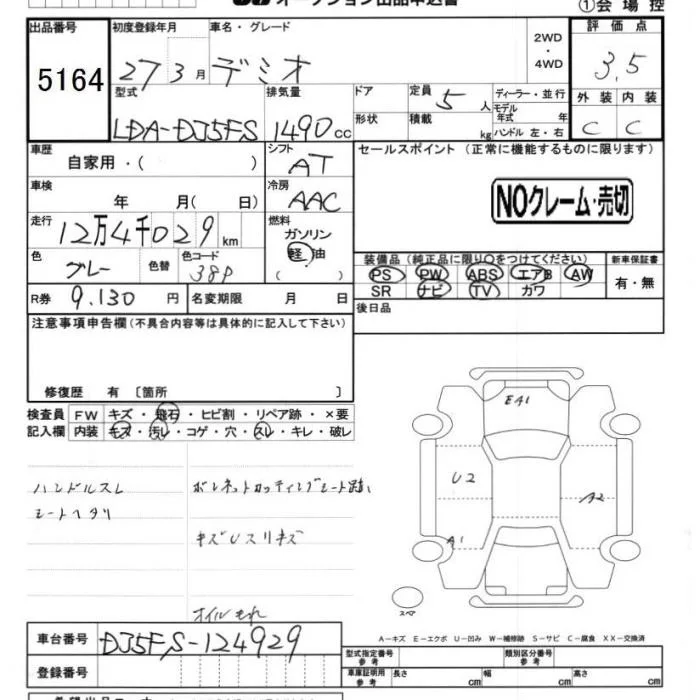 オークション出品申込書
①会場控
出品番号 初度登録年月 車名・グレード 2WD・4WD 評価点
5164 27 3月 デミオ 3.5
型式 排気量 ドア 定員 5人 ディーラー・並行 外装 内装
LDA-DJ5FS 1490cc 形状 積載 kg モデル年式 年 ハンドル 左・右 C C
車歴 シフト セールスポイント (正常に機能するものに限ります)
自家用・( ) AT
車検 冷房 NOクレーム・売切
年 月( 日) AAC
走行 燃料
12万4千029km ガソリン
色 色替 色コード 軽油 装備品(純正品に限り○をつけてください) 新車保証書
グレー 38P ( ) PS PW ABS エアB AW 有・無
R券 9.130円 名変期限 月 日 SR ナビ TV カワ
注意事項申告欄(不具合内容等は具体的に記入して下さい) 後日品
修復歴 有 〔箇所 〕
検査員 FW キズ・飛石・ヒビ割・リペア跡・×要
記入欄 内装 キズ・汚レ・コゲ・穴・スレ・キレ・破レ
E41
U2 A2
A1
ハンドルスレ
シートヘタリ
キズUスリキズ
オイルもれ
スペア
A-キズ E-エクボ U-凹み W-補修跡 S-サビ C-腐食 XX-交換済
車台番号 DJ5FS-124929
型式指定番号 参考 類別区分番号 参考
登録番号 車庫証明用 参考 長さ cm 幅 cm 高さ cm